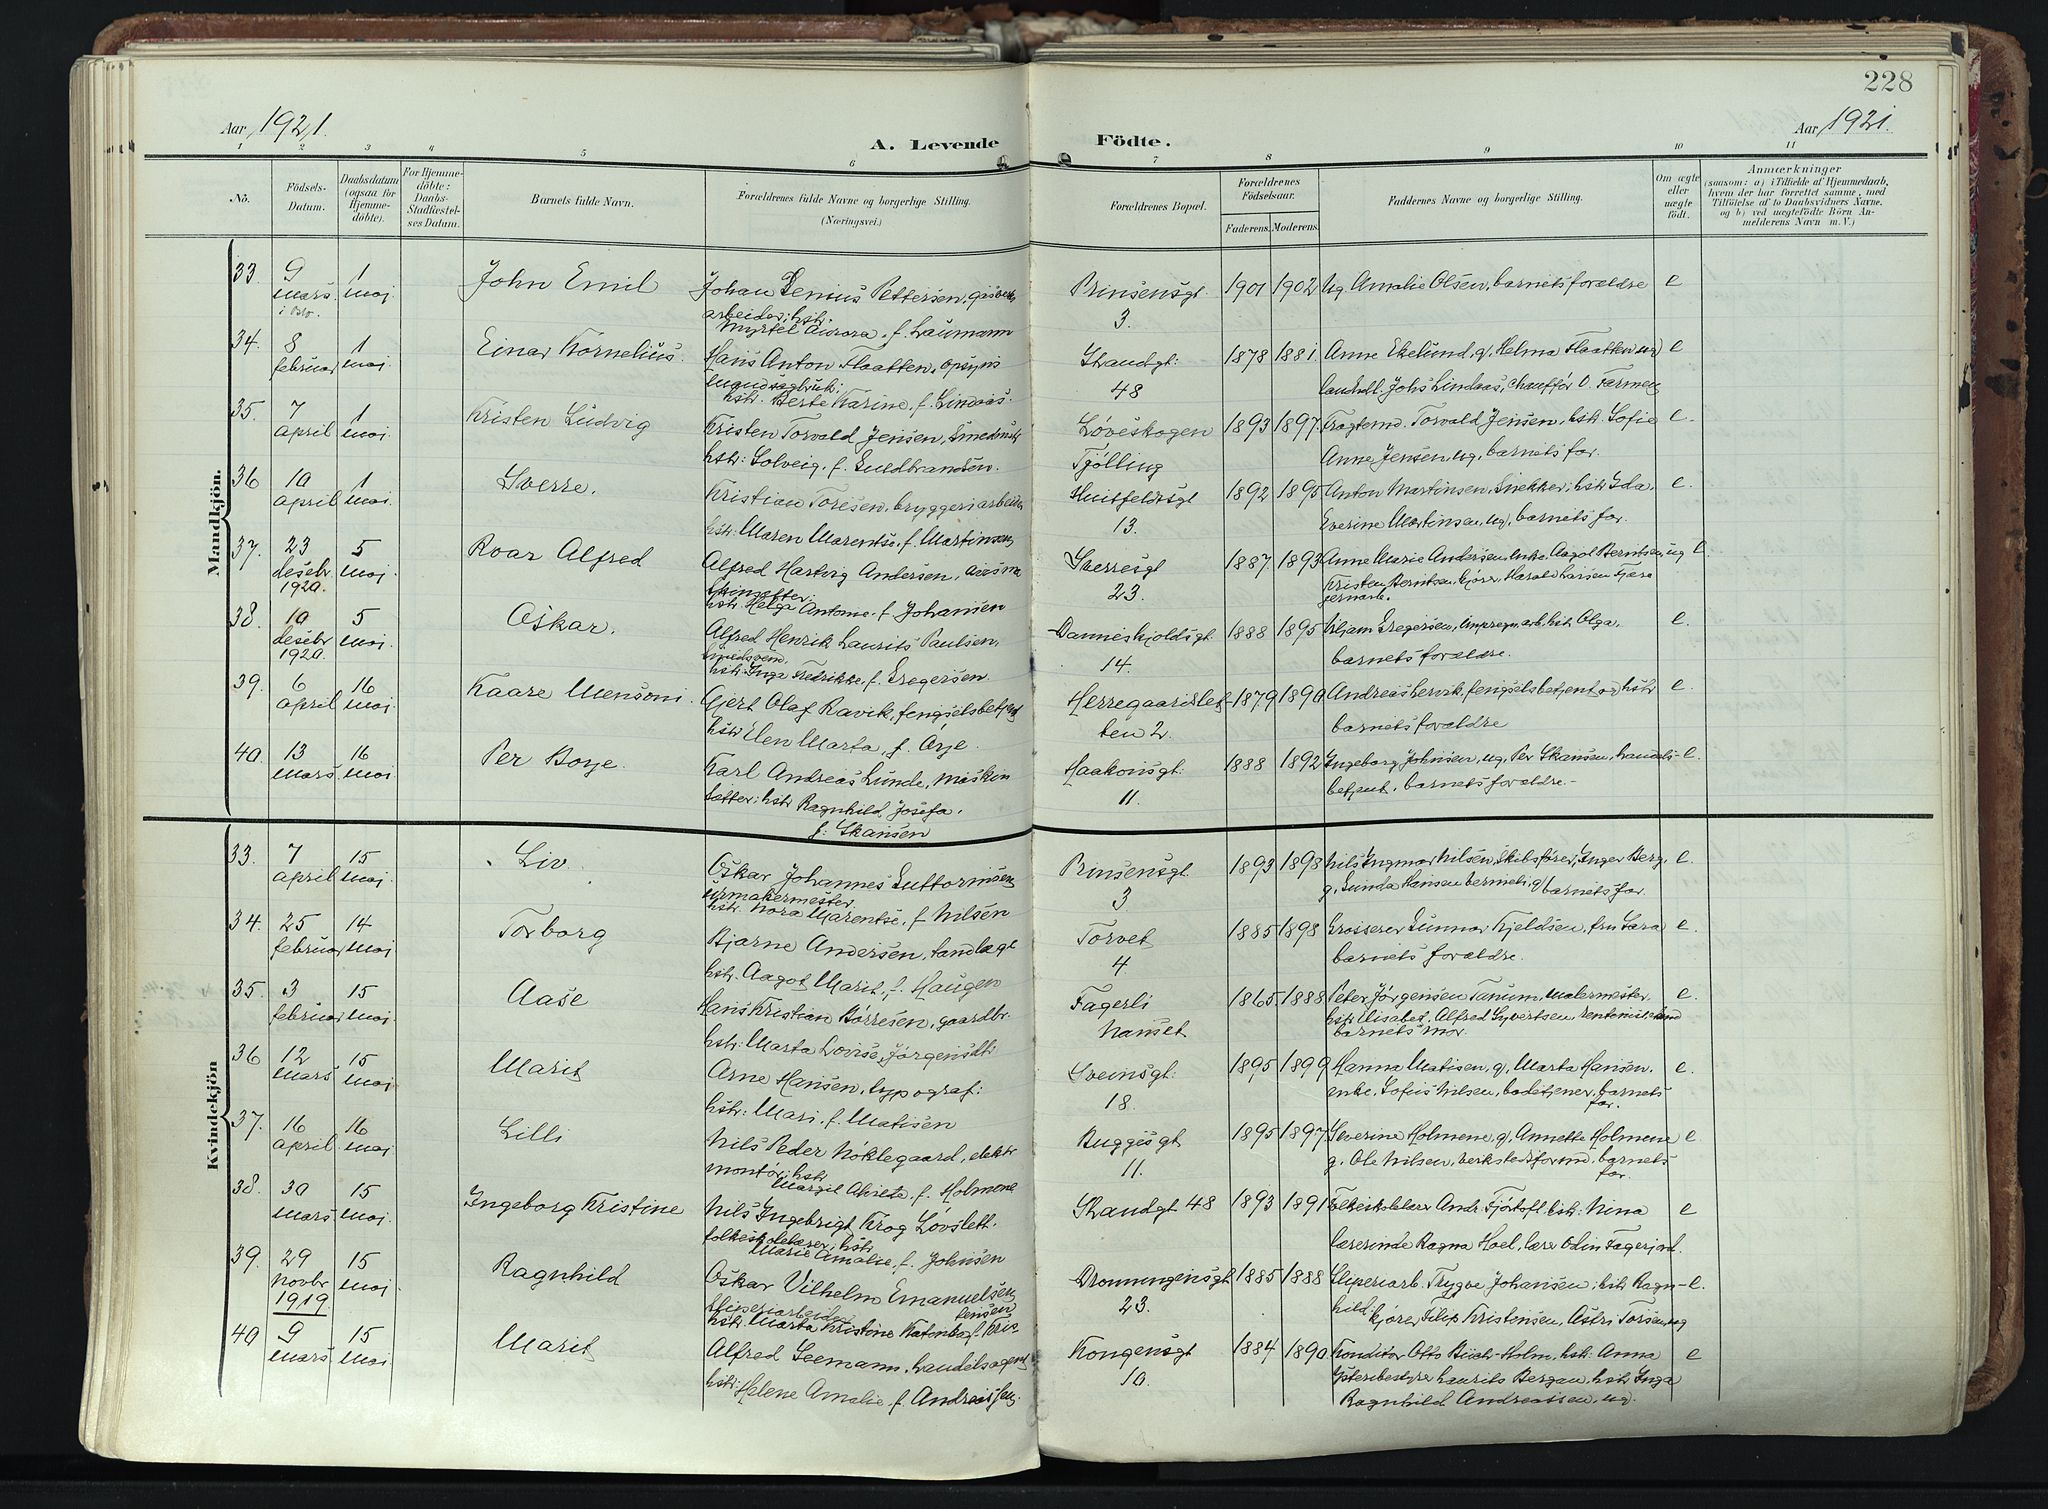 228
Aar 1921.
A. Levende Födte.
Aar 1921.
1 2 3 4 5 6 7 8 9 10 11
No.
Födsels-Datum.
Daabsdatum (ogsaa for Hjemme-döbte).
For Hjemme-döbte: Daabs-Stadfæstel-ses Datum.
Barnets fulde Navn.
Forældrenes fulde Navne og borgerlige Stilling.
(Næringsvei.)
Forældrenes Bopæl.
Forældrenes Födselsaar.
Faderens. Moderens.
Faddernes Navne og borgerlige Stilling.
Om ægte eller uægte födt.
Anmærkninger
(saasom: a) i Tilfælde af Hjemmedaab, hvem der har forrettet samme, med Tilföielse af to Daabsvidners Navne. og b) ved uægtefödte Börn An-melderens Navn m. V.)
Mandkjön.
33. 9 mars 1 maj John Emil
Johan Genius Pettersen, gasverks
arbeider; hstr:
Myrtel Aurora, f. Laumann
Prinsensgt. 3. 1901 1902
ug. Amalie Olsen, barnets forældre e
34. 8 februar 1 maj. Einar Kornelius.
Hans Anton Flaatten, opsyns
mand sagbruk;
hstr. Berte Karine, f. Lindaas.
Strandgt: 48 1878 1881.
Anne Ekelund, g, Helma Flaatten ug e
landhdl. Johs Lindaas, chauffør O. Farmen
35. 7 april 1 maj Kristen Ludvig
Kristen Torvald Jensen, Smedmstr
hstr: Solveig, f. Guldbrandsen.
Løveskogen Tjølling 1893 1897.
Fragtemd. Torvald Jensen, hstr. Sofie e.
Anne Jensen, ug, barnets for.
36 10 april 1 maj. Sverre.
Kristian Toresen, bryggeriarbeider
hstr. Maren Marentse, f. Martinsen
Huitfeldtsgt 13. 1892 1895
Anton Martinsen, Snekker; hstr Ida, e.
Everine Martinsen, ug, barnets for.
37. 23 desebr 1920. 5 maj. Roar Alfred
Alfred Hartvig Andersen,
hstr. Helga Antonie f. Johansen
Sverresgt 23. 1887 1893
Anne Marie Andersen, enke. Aagot Berntsen, ug e.
Kristen Berntsen, kjører, Harald Larsen
38. 10 desebr 1920. 5 maj. Oskar.
Alfred Henrik Laurits Paulsen,
smedsvend,
hstr: Inga Fredrikke, f. Gregersen
Danneskjoldsgt 14. 1888 1895
Viljam Gregersen, impregn.arb, hstr Olga, e.
barnets forældre.
39. 6 april 16 maj. Kaare Mensoni.
Gjert Olaf Ravik, fengselsbetjent
hstr Elen Marta, f. Orje.
Herregaardslet-ten 2. 1879 1890
Andreas Lervik, fengselsbetjent og hstr e.
barnets forældre
40. 13 mars 16 maj. Per Borje.
Karl Andreas Lunde, maskin
sætter; hstr Ragnhild Josefa.
f: Skansen
Haakonsgt. 11. 1888 1892
Ingeborg Johnsen, ug, Per Skansen, handels- e.
betjent, barnets forældre.
Kvindekjön
33. 7 april 15 maj. Liv.
Oskar Johannes Guttormsen
urmakermester.
hstr. Nora Marentse, f. Nilsen
Prinsensgt. 3 1893 1898
Nils Ingmar Nilsen, Skibsfører, Inger Berg, e.
g, Gunda Hansen g barnets for.
34. 25 februar 14 maj. Torborg
Bjarne Andersen, tandlæge
hstr. Aagot Marit, f. Haugen
Torvet 4 1885 1898
Grosserer Gunnar Kjeldsen, fru Sara e.
barnets forældre.
35. 3 februar 15 maj. Aase
Hans Kristian Børresen, gaardbr.
hstr: Marta Lovise, Jørgensdtr.
Fagerli Nanset 1865. 1888
Peter Jørgensen Tanum, malermester. e.
hstr Elisabet, Alfred Syvertsen,
barnets mor.
36 12 mars 15 maj. Marit
Arne Hansen, typograf:
hstr: Mari, f. Matisen
Sveinsgt. 18. 1895 1899
Hanna Matisen, g, Marta Hansen, e.
enke, Sofus Nilsen, badetjener, barnets
for.
37. 16 april 16 maj. Lilli
Nils Peder Nøklegaard, elektr
montør; hstr
f. Holmene
Buggesgt 11. 1895 1897
Severine Holmene, g, Annette Holmene e
g. Ole Nilsen, verkstedsformd. barnets
for.
38. 30 mars 15 maj. Ingeborg Kristine
Nils Ingebrigt Krog Løvslett.
folkeskolelærer; hstr
Marie Amalie, f. Johnsen
Strandgt 48 1893 1891
Folkeskolelærer Andr. Fjørtoft hstr: Nina e
lærerinde Ragna Hoel, lærer Odin Fagerjord.
39. 29 novbr 1919. 15 maj. Ragnhild
Oskar Vilhelm Emanuelsen
Sliperiarbeider
hstr. Marta Kristine f. Kris-
tensen
Dronningensgt 23. 1885 1888
Sliperiarb. Trygve Johansen; hstr Ragn- e.
hild. kjører Filip Kristensen, Astri Torsen, ug
40 9 mars 15 maj. Marit
Alfred Seemann, handelsagent
hstr: Helene Amalie, f. Andreassen.
Kongensgt 10. 1884 1890
Konditor Otto Holm, hstr: Anna e
Ysteribestyrer Laurits Bergan, hstr Inga
Ragnhild Andreassen, ug.